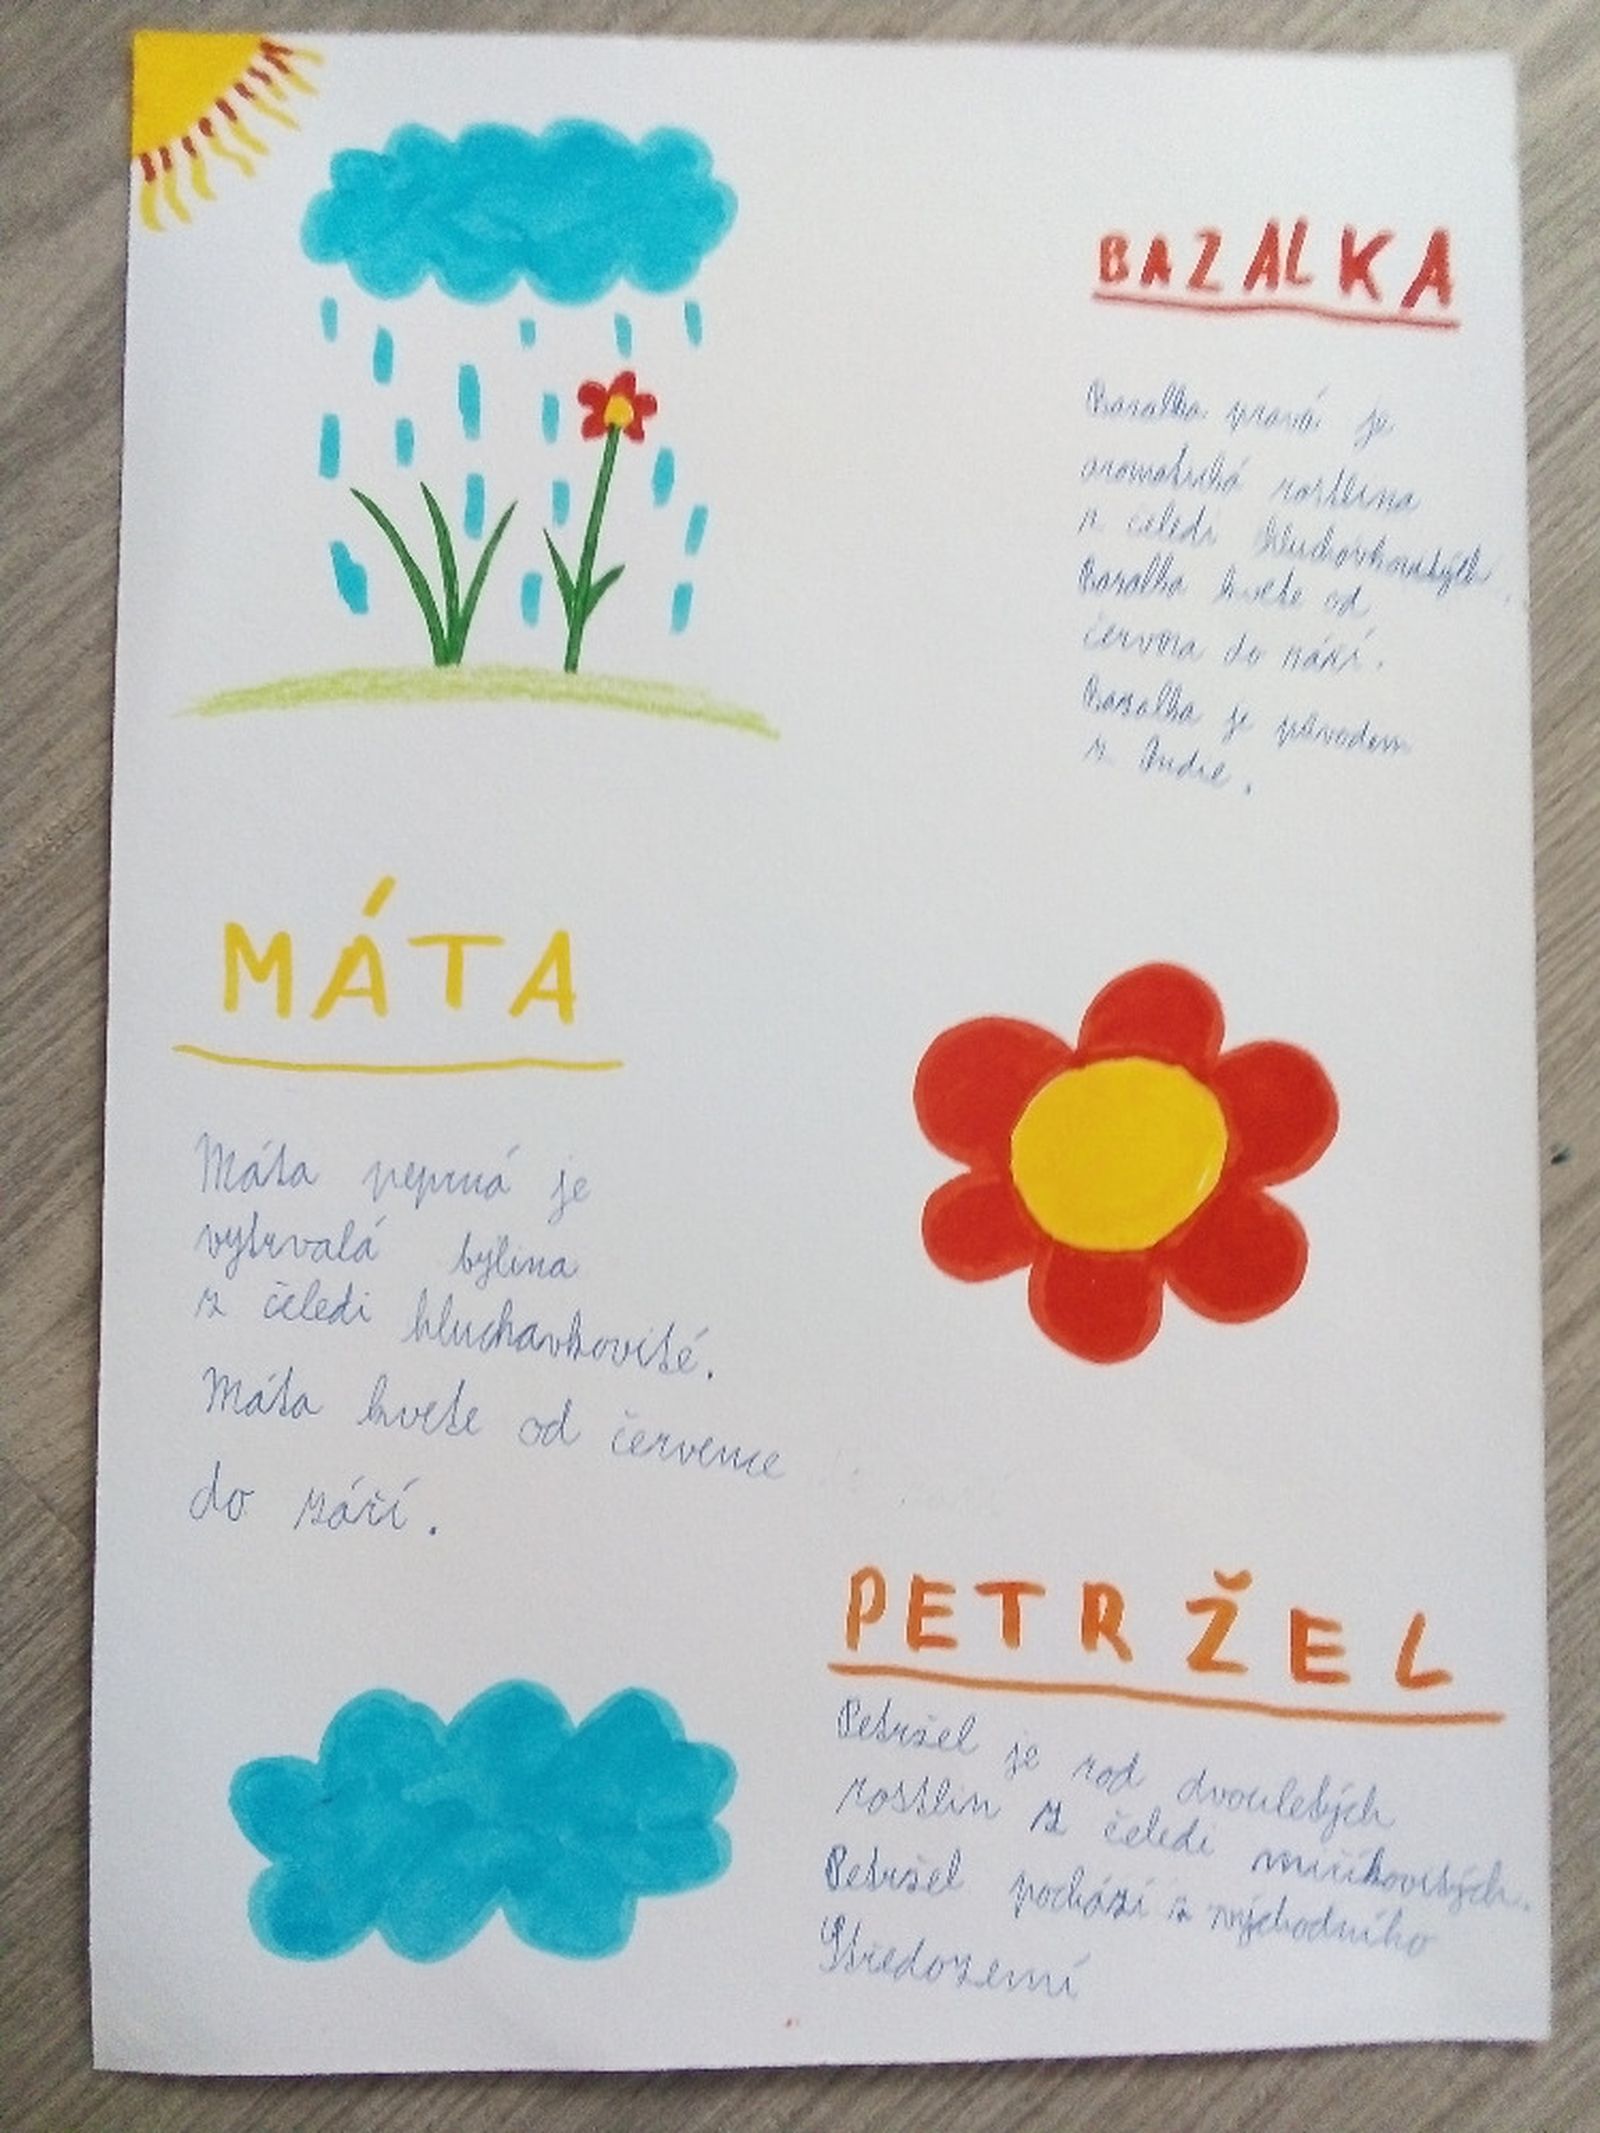 BAZALKA
Bazalka pravá je
aromatická rostlina
z čeledi hluchavkovitých.
Bazalka kvete od
června do září.
Bazalka je původem
z Indie.
MÁTA
Máta peprná je
vytrvalá bylina
z čeledi hluchavkovité.
Máta kvete od července
do září.
PETRŽEL
Petržel je rod dvouletých
rostlin z čeledi miříkovitých.
Petržel pochází z východního
Středozemí